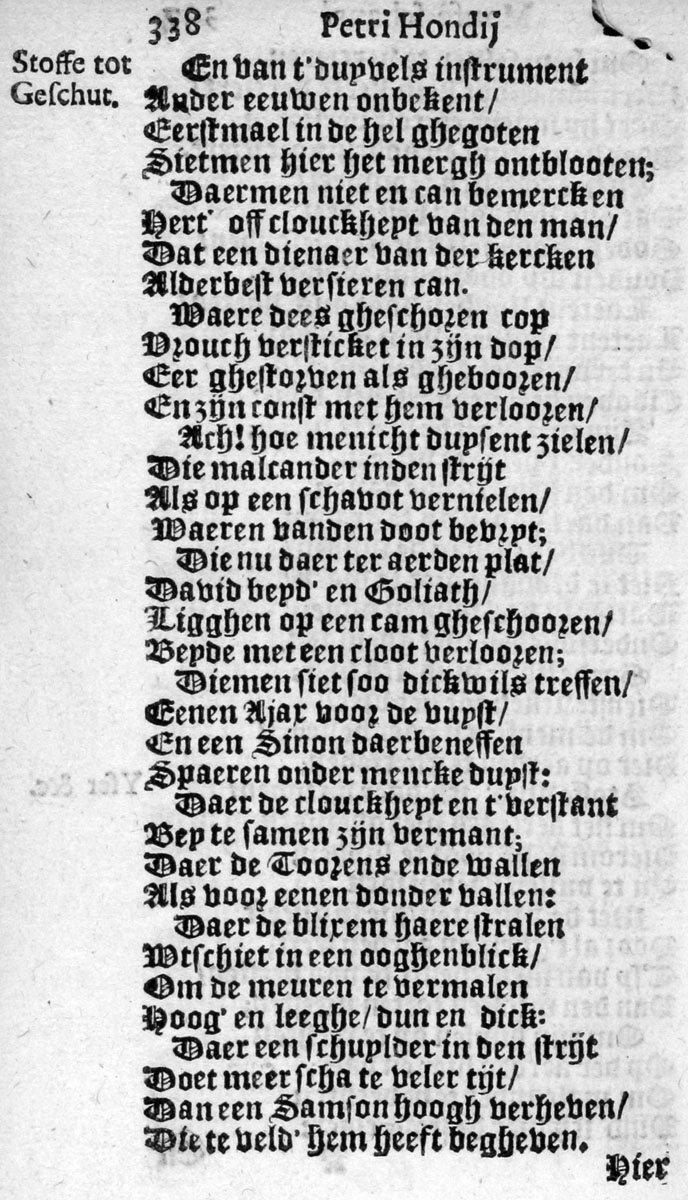 338 Petri Hondij
Stoffe tot
Geſchut.
En van t'duyvels inſtrument
Ander eeuwen onbekent/
Eerſtmael in de hel ghegoten
Sietmen hier het mergh ontblooten;
Daermen niet en can bemercken
Hert' off clouckheyt van den man/
Dat een dienaer van der kercken
Alderbeſt verſieren can.
Waere dees gheſchoren cop
Vrouch verſticket in zijn dop/
Eer gheſtorven als ghebooren/
En zijn conſt met hem verlooren/
Ach! hoe menicht duyſent zielen/
Die malcander inden ſtrijt
Als op een ſchavot vernielen/
Waeren vanden doot bevryt;
Die nu daer ter aerden plat/
David beyd' en Goliath/
Ligghen op een cam gheſchooren/
Beyde met een cloot verlooren;
Diemen ſiet ſoo dickwils treffen/
Eenen Ajax voor de vuyſt/
En een Sinon daerbeneffen
Spaeren onder mencke duyſt:
Daer de clouckheyt en t'verſtant
Bey te ſamen zijn vermant;
Daer de Toorens ende wallen
Als voor eenen donder vallen:
Daer de blixem haere ſtralen
Wtſchiet in een ooghenblick/
Om de meuren te vermalen
Hoog' en leeghe/ dun en dick:
Daer een ſchuylder in den ſtrijt
Doet meer ſcha te veler tijt/
Dan een Samſon hoogh verheven/
Die te veld' hem heeft begheven.
Hier